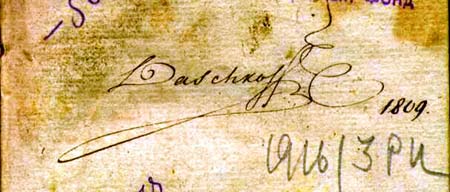 ФОНД
Daschkoff
1809.
1916/3 РИ